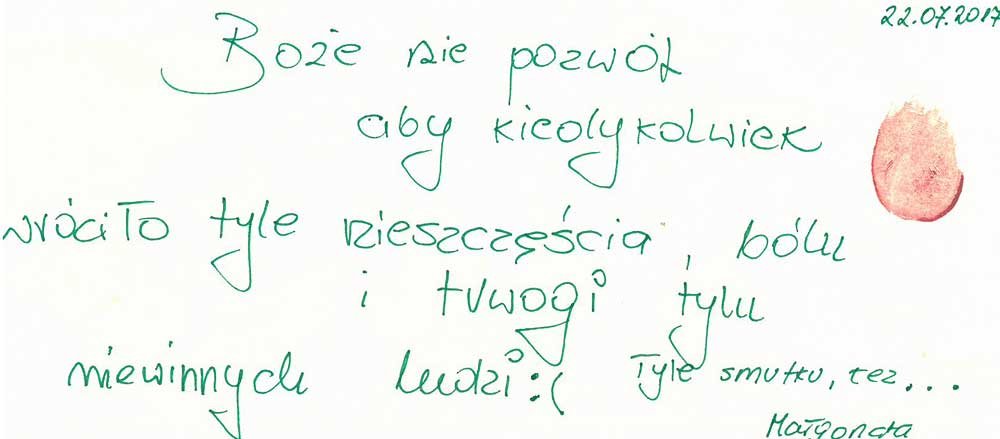 22.07.2017
Boże nie pozwól
aby kiedykolwiek
wróciło tyle nieszczęścia, bólu
i trwogi tylu
niewinnych ludzi :( Tyle smutku, łez...
Małgorzata